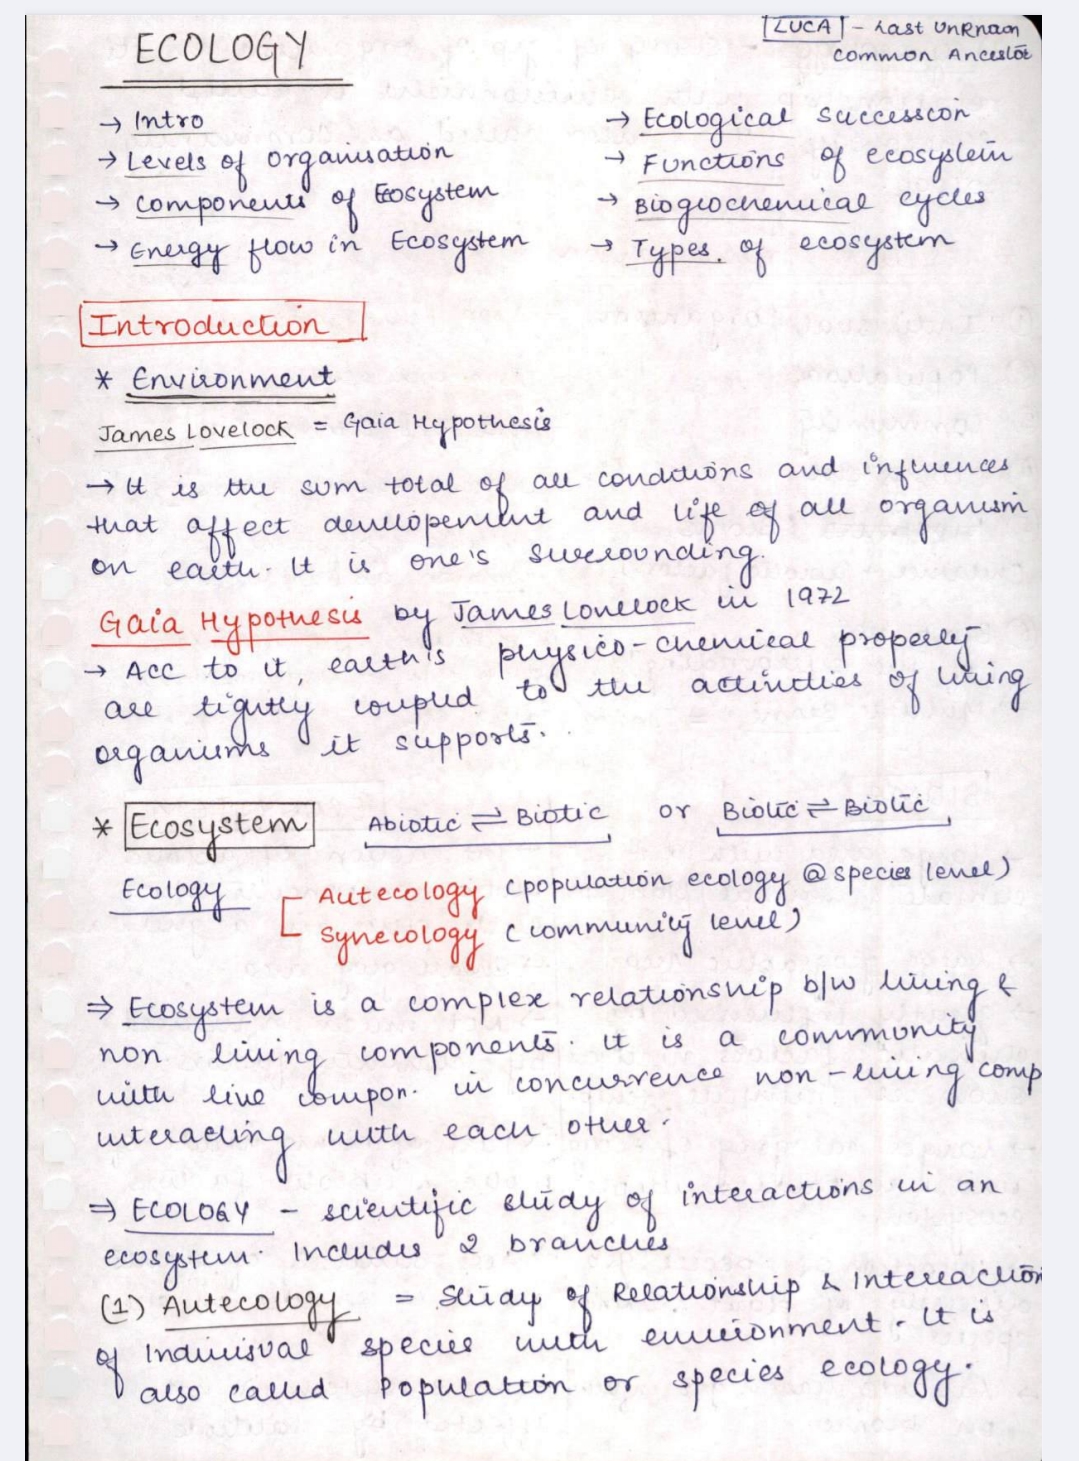 ECOLOGY
LUCA - Last Unknown
Common Ancestor
→ Intro
→ Levels of organisation
→ Components of Ecosystem
→ Energy flow in Ecosystem
→ Ecological succession
→ Functions of ecosystem
→ Biogeochemical cycles
→ Types of ecosystem
Introduction
* Environment
James Lovelock = Gaia Hypothesis
→ It is the sum total of all conditions and influences
that affect developement and life of all organism
on earth. It is one's surrounding.
Gaia Hypothesis by James Lovelock in 1972
→ Acc to it, earth's physico-chemical property
are tightly coupled to the activities of living
organisms it supports.
* Ecosystem Abiotic ⇌ Biotic or Biotic ⇌ Biotic
Ecology Autecology (population ecology @ species level)
Synecology (community level)
⇒ Ecosystem is a complex relationship b/w living &
non living components. it is a community
with live compon. in concurrence non-living comp
interacting with each other.
⇒ ECOLOGY - scientific study of interactions in an
ecosystem. Includes 2 branches
(1) Autecology = Study of Relationship & Interaction
of Indivisual species with environment. It is
also called Population or species ecology.